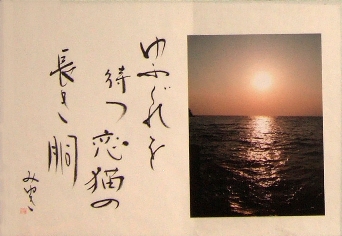 ゆふぐれを
待つ恋猫の
長き胴
みゆき